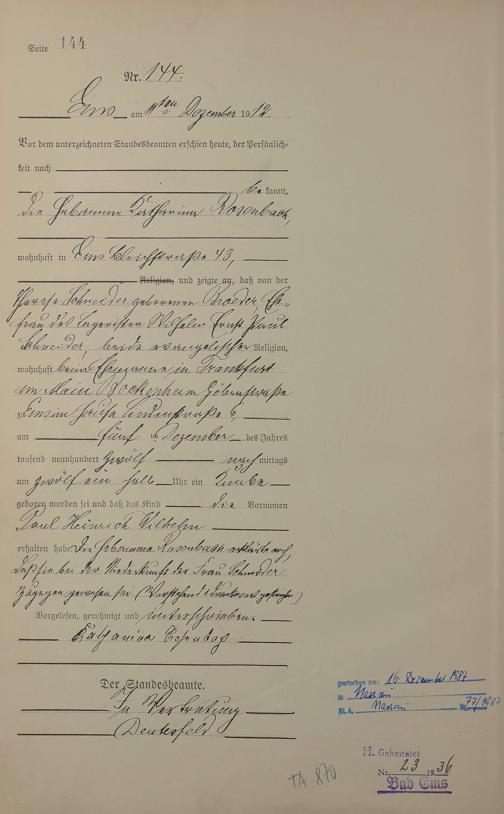 Seite 144
Nr. 144.
Ems am 11ten Dezember 1912.
Vor dem unterzeichneten Standesbeamten erschien heute, der Persönlich-
keit nach
bekannt,
die Hebamme Katharina Rosenbach,
wohnhaft in Ems Bleichstraße 43,
Religion, und zeigte an, daß von der
Schneider geborenen Broeder, Ehe-
frau des Lageristen Wilhelm Ernst Paul
Schneider, beide evangelischer Religion,
wohnhaft beim Ehemanne in Frankfurt
am Main Bockenheim
zu Ems im Hause Lindenstraße 6,
am fünf ten Dezember des Jahres
tausend neunhundert zwölf nachmittags
um zwölf ein halb Uhr ein Knabe
geboren worden sei und daß das Kind die Vornamen
Paul Heinrich Wilhelm
erhalten habe. Die Hebamme Rosenbach erklärte noch,
daß sie bei der Niederkunft der Frau Schneider
zugegen gewesen sei. (Vorstehend Druckwort gestrichen)
Vorgelesen, genehmigt und unterschrieben.
Katharina Rosenbach
Der Standesbeamte.
In Vertretung
gestorben am: 16. Dezember 1987
in Nassau
St. A. Nassau Nr. 77/1987
H. Geheiratet
Nr. 23 1936
Bad Ems
TA 870